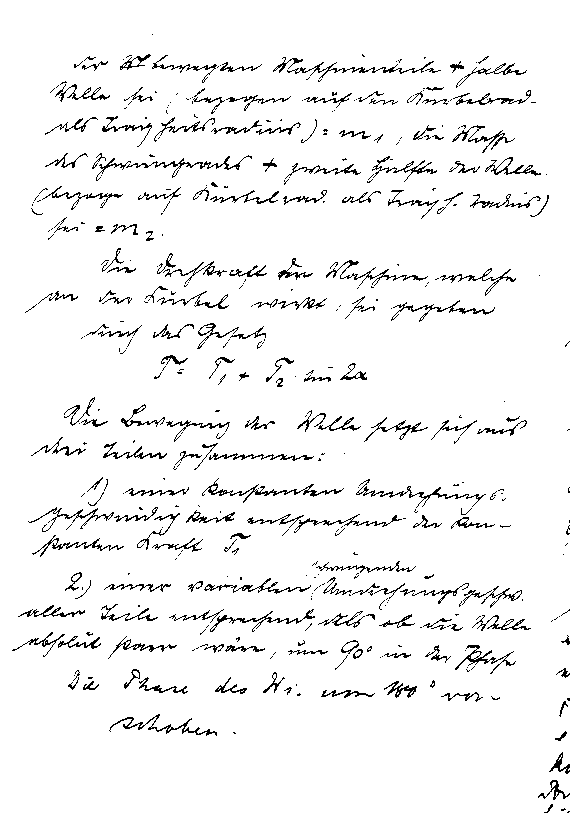 der bewegten Maschinenteile + halbe
Welle sei (bezogen auf den Kurbelrad-
als Trägheitsradius) = m₁, die Masse
des Schwungrades + zweite Hälfte der Welle
(bezogen auf Kurbelrad. als Trägh. radius)
sei = m₂.
Die Drehkraft der Maschine, welche
an der Kurbel wirkt, sei gegeben
durch das Gesetz
T = T₁ + T₂ sin 2α
Die Bewegung der Welle setzt sich aus
drei Teilen zusammen:
1) einer konstanten Umdrehungs-
geschwindigkeit entsprechend der kon-
stanten Kraft T₁
schwingenden
2.) einer variablen Umdrehungsgeschw.
aller Teile entsprechend, als ob die Welle
absolut starr wäre, um 90° in der Phase
Die Phase des Wi. um 180° ver-
schoben.